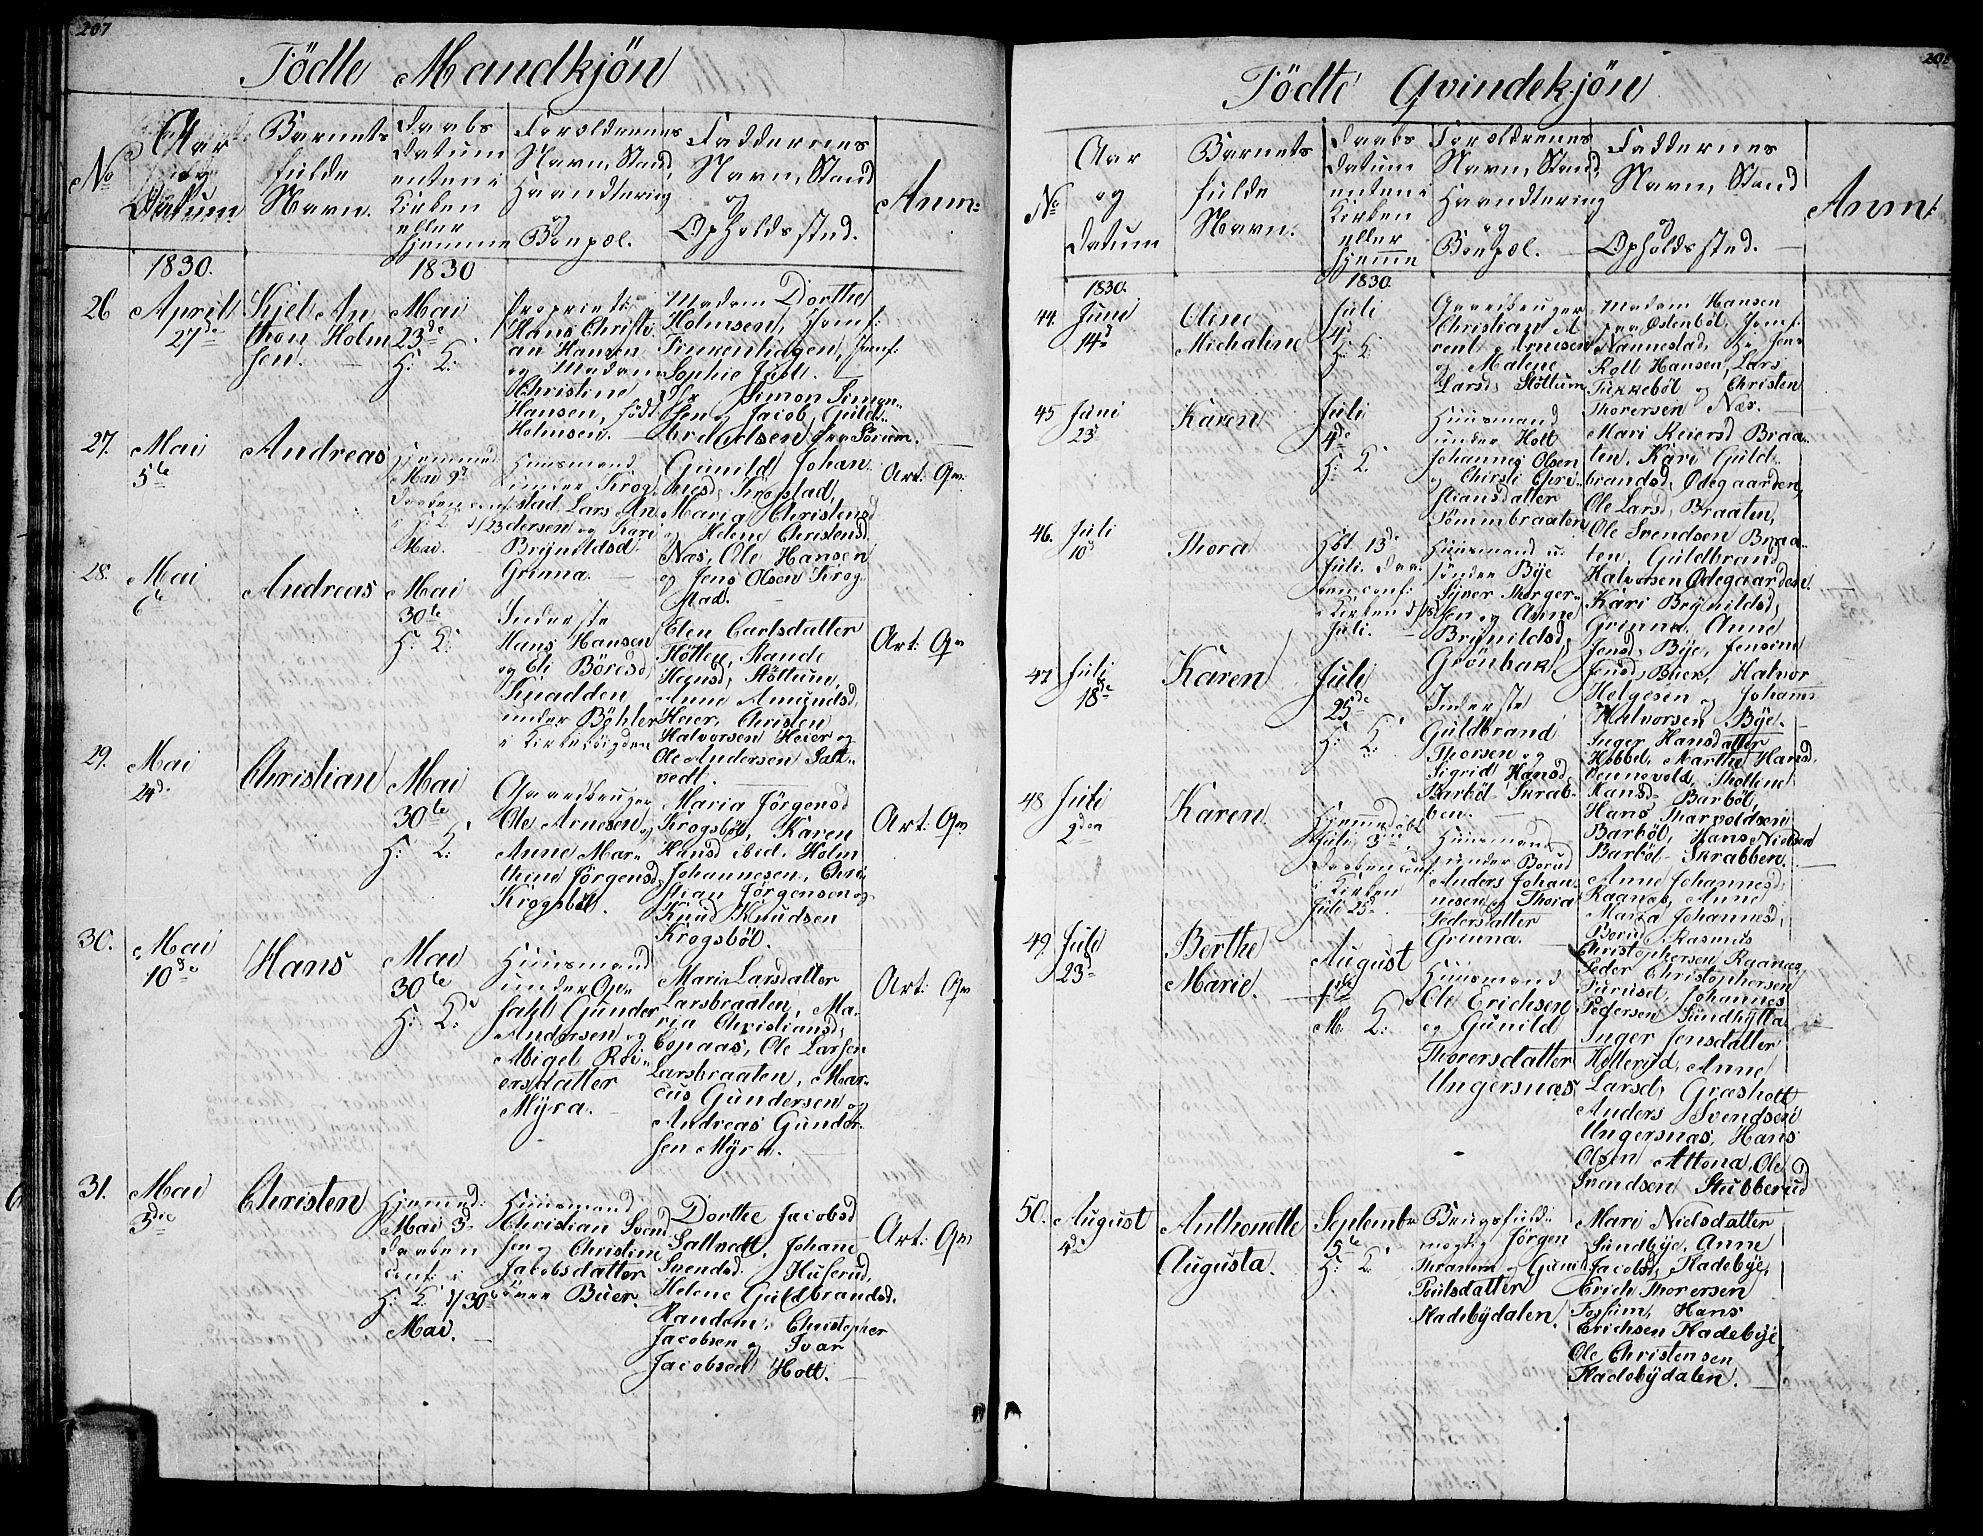 207
Födte Mandkjön
No
Aar
og
Datum
Barnets
fulde
Navn.
Daabs
Datum
enten i
Kirken
eller
hjemme
Forældrenes
Navn, Stand,
Haandtering
og
Boepæl.
Faddernes
Navn, Stand
og
Opholdssted.
Anm:
1830.
1830
26
April
27de
Kjel An
thon Holm
sen.
Mai
23de
H: K:
Proprietr:
Hans Christi
an Hansen
og Madam
Christine
Hansen, född
Holmsen.
Madam Dorthe
Holmsen, Jomf:
Finkenhagen, Jomf.
Sophie Juell.
Hr Simon Simon-
sen og Jacob Guld-
brandsen fra Sörum.
27.
Mai
5te
Andreas
Hjemmed:
Mai 9d
Daaben conf
i H: K: d/23
Mai.
Huusmand
under Krog-
stad Lars An
dersen og Kari
Brynildsd:
Grinna.
Gunild Johan
nesd: Krogstad,
Maria Christensd
og Helene Christensd.
Næs, Ole Hansen
og Jens Olsen Krog
stad.
Art: Qv:
28.
Mai
6te
Andreas
Mai
30te
H: K:
Inderste
Hans Hansen
og Eli Böresd,
Knadden
under Böhler
i Kirkeböigden
Elen Carlsdatter
Hötten, Rande
Hansd, Stöttum,
Anne Amundsd,
Heier, Christen
Halvorsen Heier og
Ole Andersen Salt-
vedt.
Art: Qv
29.
Mai
24de
Christian
Mai
30te
H: K:
Gaardbruger
Ole Arnesen og
Anne Mar-
thine Jörgensd.
Krogsböl.
Maria Jörgensd
Krogsböl, Karen
Hansd ibid, Holm
Johannesen, Chri-
stian Jörgensen og
Knud Knudsen
Krogsböl.
Art: Qv
30.
Mai
10de
Hans
Mai
30te
H: K:
Huusmand
under Op-
sahl Gunder
Andersen og
Abigel Rei-
ersdatter
Myra.
Maria Larsdatter
Larsbraaten, Ma-
ria Christiansd,
Copaas, Ole Larsen
Larsbraaten, Mar-
cus Gundersen og
Andreas Gunder-
sen Myra.
Art: Qv
31.
Mai
3die
Christen
Hjemmed:
Mai 3d
Daaben
Conf: i
H: K: d/30te
Mai.
Huusmand
Christian Svend
sen og Christine
Jacobsdatter
Buer.
Dorthe Jacobsd
Saltvedt, Johane
Svendsd: Huserud,
Helene Guldbrandsd.
Randem, Christopher
Jacobsen og Ivar
Jacobsen Holt.
Art: Qv
208
Födte Qvindekjön
No
Aar
og
Datum
Barnets
fulde
Navn.
Daabs
Datum
enten i
Kirken
eller
hjemme
Forældrenes
Navn, Stand,
Haandtering
og
Boepæl.
Faddernes
Navn, Stand
og
Opholdssted.
Anm:
1830.
1830.
44.
Juni
14d
Oline
Michaline
Juli
4de
H: K:
Gaardbruger
Christian A
rent Arnesen
og Malene
Larsd, Stöttum
Madam Hansen
fra Östenböl, Jomf:
Nannestad, Hr Jens
Roll Hansen, Lars
Tukkeböl og Christen
Thorersen Næs.
45
Juni
23d
Karen
Juli
4de
H: K:
Huusmand
under Holt
Johannes Olsen
og Chirsti Chri-
stiansdatter
Tömmbraaten
Mari Reiersd Braa-
ten, Kari Guld-
brandsd, Ödegaarden,
Ole Larsd, Braaten,
Ole Svendsen Braa-
ten, Guldbrand
Halvorsen Ödegaarden.
46.
Juli
10d
Thora
Hbt. 13de
Juli. Daa-
ben conf:
i Kirken d/18d
Juli.
Huusmand u.
söndre Bye
Syver Thorger-
sen og Anne
Brynildsd,
Grönbak
Kari Brynildsd,
Grinna, Anne
Jensd, Bye, Jensine
Jensd, Buer, Halvor
Helgesen og Johanns
Halvorsen Bye.
47
Juli
18de
Karen
Juli
25de
H: K:
Inderste
Guldbrand
Thorsen og
Sigrid Hansd,
Barböl-Skrab-
ben.
Inger Hansdatter
Hobbel, Marthe Hansd,
Vennevold, Thollene
Hansd Barböl,
Hans Tharvoldsen
Barböl, Hans Nielsen
Barböl-Skrabben.
48
Juli
2den
Karen
Hjemmedöbt
Juli 3die,
Daaben conf
i Kirken
Juli 25d.
Huusmand
under Borud
Anders Johan-
nesen og Thora
Pedersdatter
Grinna.
Anne Johannesd,
Raanes, Anne
Maria Johannesd,
Borud, Rasmus
Christophersen Raanes,
Peder Christophersen
Furuset, Johannes
Pedersen Sundhytta.
49.
Juli
23d
Berthe
Marie.
August
1ste
M: K:
Huusmand
Ole Erichsen
og Gunild
Thorersdatter
Ungersnæs
Inger Jensdatter
Hellerud, Anne
Larsd, Græsholt
Anders Svendsen
Ungersnæs, Hans
Olsen Altona, Ole
Svendsen Stubberud
50.
August
4de
Anthonette
Augusta.
Septembr
5te
H: K:
Bergsfuld-
mægtig Jörgen
Thramm og Gunil
Poulsdatter
Hadebydalen.
Mari Nielsdatter
Sundbye, Anne
Jacobsd, Hadebye,
Erich Thorersen
Fossum, Hans
Erichsen Hadebye,
Ole Christensen
Hadebydalen.